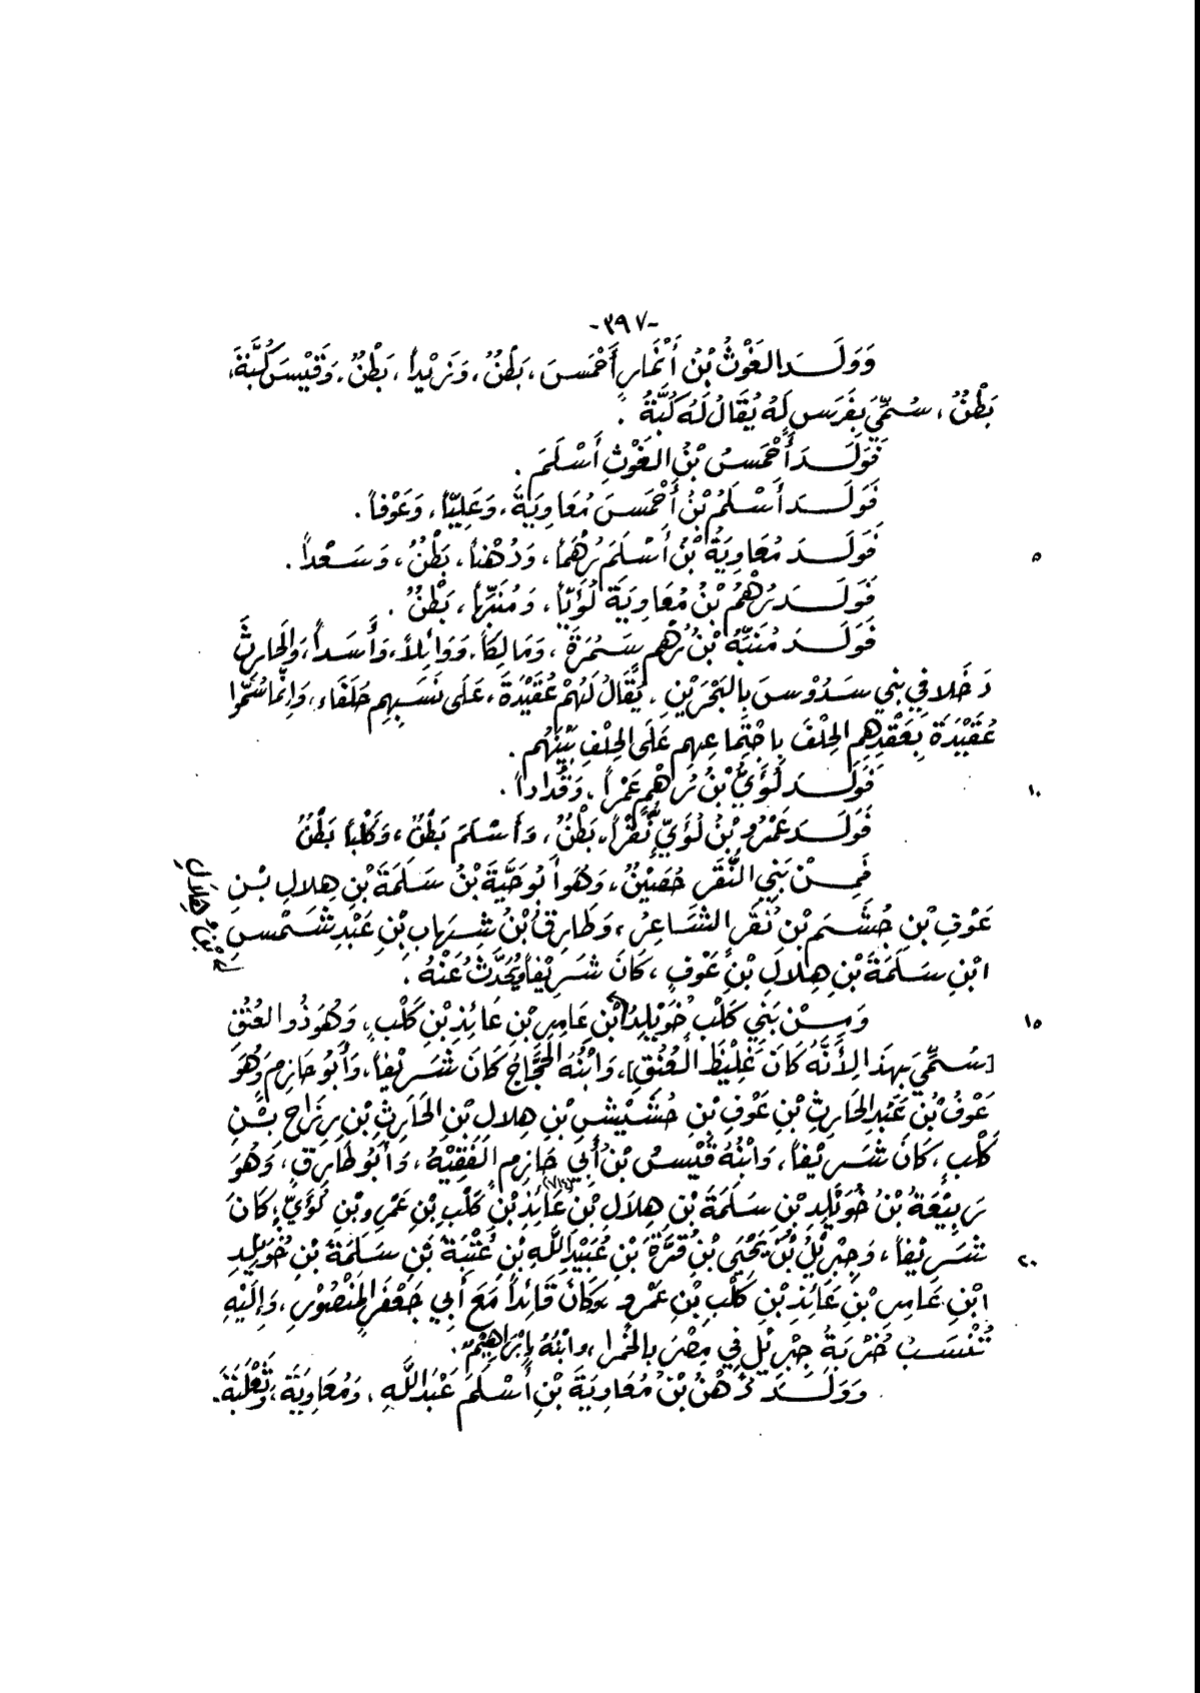 -٣٩٧-
وَوَلَـدَ الغَوْثُ بْنُ أَنْمَارِ أَحْمَسَ، بَطْنٌ، وَزَيْداً، بَطْنٌ، وَقَيْسَ كُبَّةَ،
بَطْنٌ، سُمِّيَ بِفَرَسٍ لَهُ يُقَالُ لَهُ كُبَّةُ .
فَوَلَـدَ أَحْمَسُ بْنُ الغَوْثِ أَسْلَمَ .
فَوَلَـدَ أَسْلَمُ بْنُ أَحْمَسَ مُعَاوِيَةَ، وَعَلِيّاً، وَعَوْفاً .
٥ فَوَلَـدَ مُعَاوِيَةُ بْنُ أَسْلَمَ رُهْماً، وَدُهْناً، بَطْنٌ، وَسَعْداً .
فَوَلَـدَ رُهْمُ بْنُ مُعَاوِيَةَ لُؤَيّاً، وَمُنَبِّهاً، بَطْنٌ .
فَوَلَـدَ مُنَبِّهُ بْنُ رُهْمِ سَمُرَةَ، وَمَالِكاً، وَوَائِلاً، وَأَسَداً، وَالحَارِثَ
دَخَلا فِي بَنِي سَدُوْسَ بِالبَحْرَيْنِ، يُقَالُ لَهُمْ عُقَيْدَةُ، عَلَى نَسَبِهِم حُلَفَاء، وَإِنَّمَا سُمُّوا
عُقَيْدَةَ بِعَقْدِهِم الحِلْفَ بِاجْتِمَاعِهِم عَلَى الحِلْفِ بَيْنَهُم .
١٠ فَوَلَـدَ لُؤَيُّ بْنُ رُهْمِ عَمْراً، وَقُدَاداً .
فَوَلَـدَ عَمْرُو بْنُ لُؤَيٍّ نُفَراً، بَطْنٌ، وَأَسْلَمَ بَطْنٌ، وَكَلْباً بَطْنٌ
فَمِـنْ بَنِي النُّفَرِ حُصَيْنٌ، وَهُوَ أَبُو حَيَّةَ بْنُ سَلَمَةَ بْنِ هِلالِ بْـنِ
عَوْفِ بْنِ جُشَـمَ بْنِ نُفَرَ الشَّاعِرُ، وَطَارِقُ بْنُ شِهَابِ بْنِ عَبْدِ شَمْسِ
بْنِ هِلَالِ
ابْنِ سَلَمَةَ بْنِ هِلَالِ بْنِ عَوْفٍ، كَانَ شَرِيْفاً وَيُحَدَّثُ عَنْهُ .
١٥ وَمِـنْ بَنِي كَلْبٍ خُوَيْلِدُ بْنُ عَامِرِ بْنِ عَائِذِ بْنِ كَلْبٍ، وَهُوَ ذُو العُنُقِ
[سُمِّيَ بِهَذَا لِأَنَّهُ كَانَ غَلِيْظَ الْعُنُقِ]، وَابْنُهُ الحَجَّاجُ كَانَ شَرِيْفاً، وَأَبُو حَازِمٍ وَهُوَ
عَوْفُ بْنُ عَبْدِ الحَارِثِ بْنِ عَوْفِ بْنِ حُشَيْشِ بْنِ هِلالِ بْنِ الحَارِثِ بْنِ رِزَاحِ بْـنِ
كَلْبٍ، كَانَ شَرِيْفاً، وَابْنُهُ قَيْسُ بْنُ أَبِي حَازِمٍ الفَقِيْهُ، وَأَبُو طَارِقٍ، وَهُوَ
رَبِيْعَةُ بْنُ خُوَيْلِدِ بْنِ سَلَمَةَ بْنِ هِلَالِ بْنِ عَائِذِ بْنِ كَلْبِ بْنِ عَمْرِو بْنِ لُؤَيٍّ، كَانَ
٢٠ شَرِيْفاً، وَجِبْرِيْلُ بْنُ يَحْيَى بْنِ قُرَّةَ بْنِ عُبَيْدِ اللَّهِ بْنِ عُتْبَةَ بْنِ سَلَمَةَ بْنِ خُوَيْلِدِ
ابْنِ عَامِرِ بْنِ عَائِذِ بْنِ كَلْبِ بْنِ عَمْرٍو، وَكَانَ قَائِداً مَعَ أَبِي جَعْفَرٍ المَنْصُوْرِ، وَإِلَيْهِ
تُنْسَبُ خُرْبَةُ جِبْرِيْلَ فِي مِصْرَ بِالحَمْرا، وَابْنُهُ إِبْرَاهِيْمُ .
وَوَلَـدَ دُهْنُ بْنُ مُعَاوِيَةَ بْنِ أَسْلَمَ عَبْدَ اللَّهِ، وَمُعَاوِيَةَ، وَثَعْلَبَةَ .